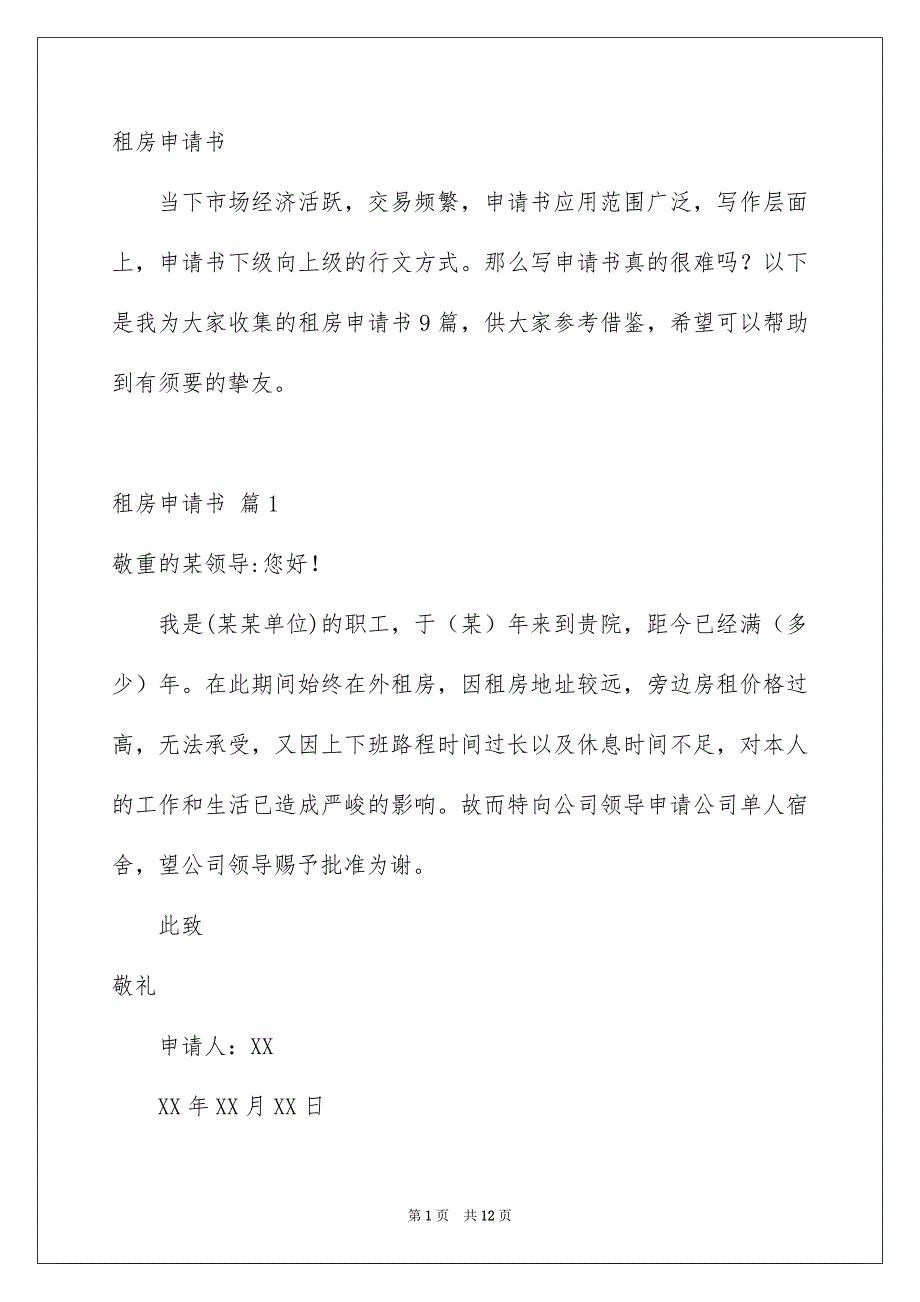 租房申请书
当下市场经济活跃，交易频繁，申请书应用范围广泛，写作层面
上，申请书下级向上级的行文方式。那么写申请书真的很难吗？以下
是我为大家收集的租房申请书9篇，供大家参考借鉴，希望可以帮助
到有须要的挚友。
租房申请书 篇1
敬重的某领导:您好！
我是(某某单位)的职工，于（某）年来到贵院，距今已经满（多
少）年。在此期间始终在外租房，因租房地址较远，旁边房租价格过
高，无法承受，又因上下班路程时间过长以及休息时间不足，对本人
的工作和生活已造成严峻的影响。故而特向公司领导申请公司单人宿
舍，望公司领导赐予批准为谢。
此致
敬礼
申请人：XX
XX年XX月XX日
第1页 共12页